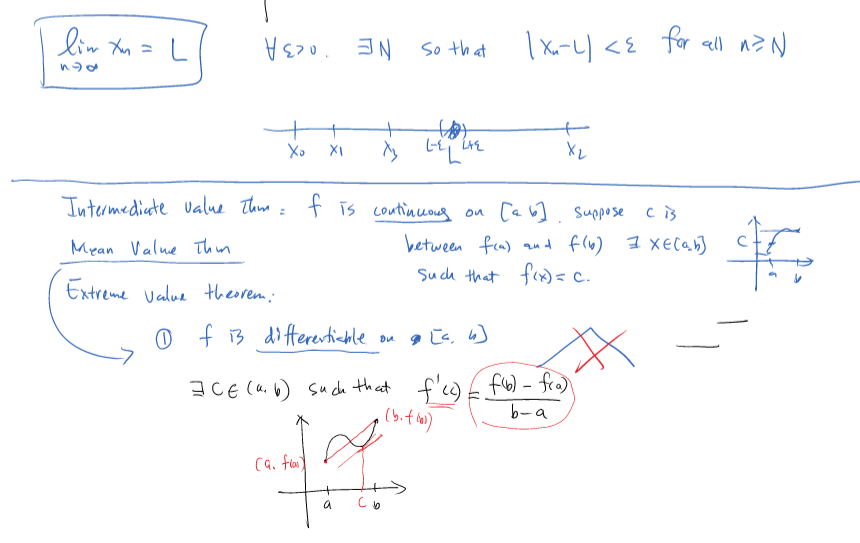 lim xn = L   ∀ε>0. ∃N so that |xn-L| < ε for all n≥N
n→∞
x0 x1 x3 L-ε L L+ε x2
Intermediate value Thm: f is continuous on [a b]. suppose c is
Mean Value Thm   between f(a) and f(b) ∃ x∈(a,b]
such that f(x)=c.
C
a b
Extreme value theorem:
① f is differentiable on [a, b]
∃ C∈(a.b) such that f'(c) = f(b) - f(a) / b-a
(b.f(b))
(a. f(a))
a c b